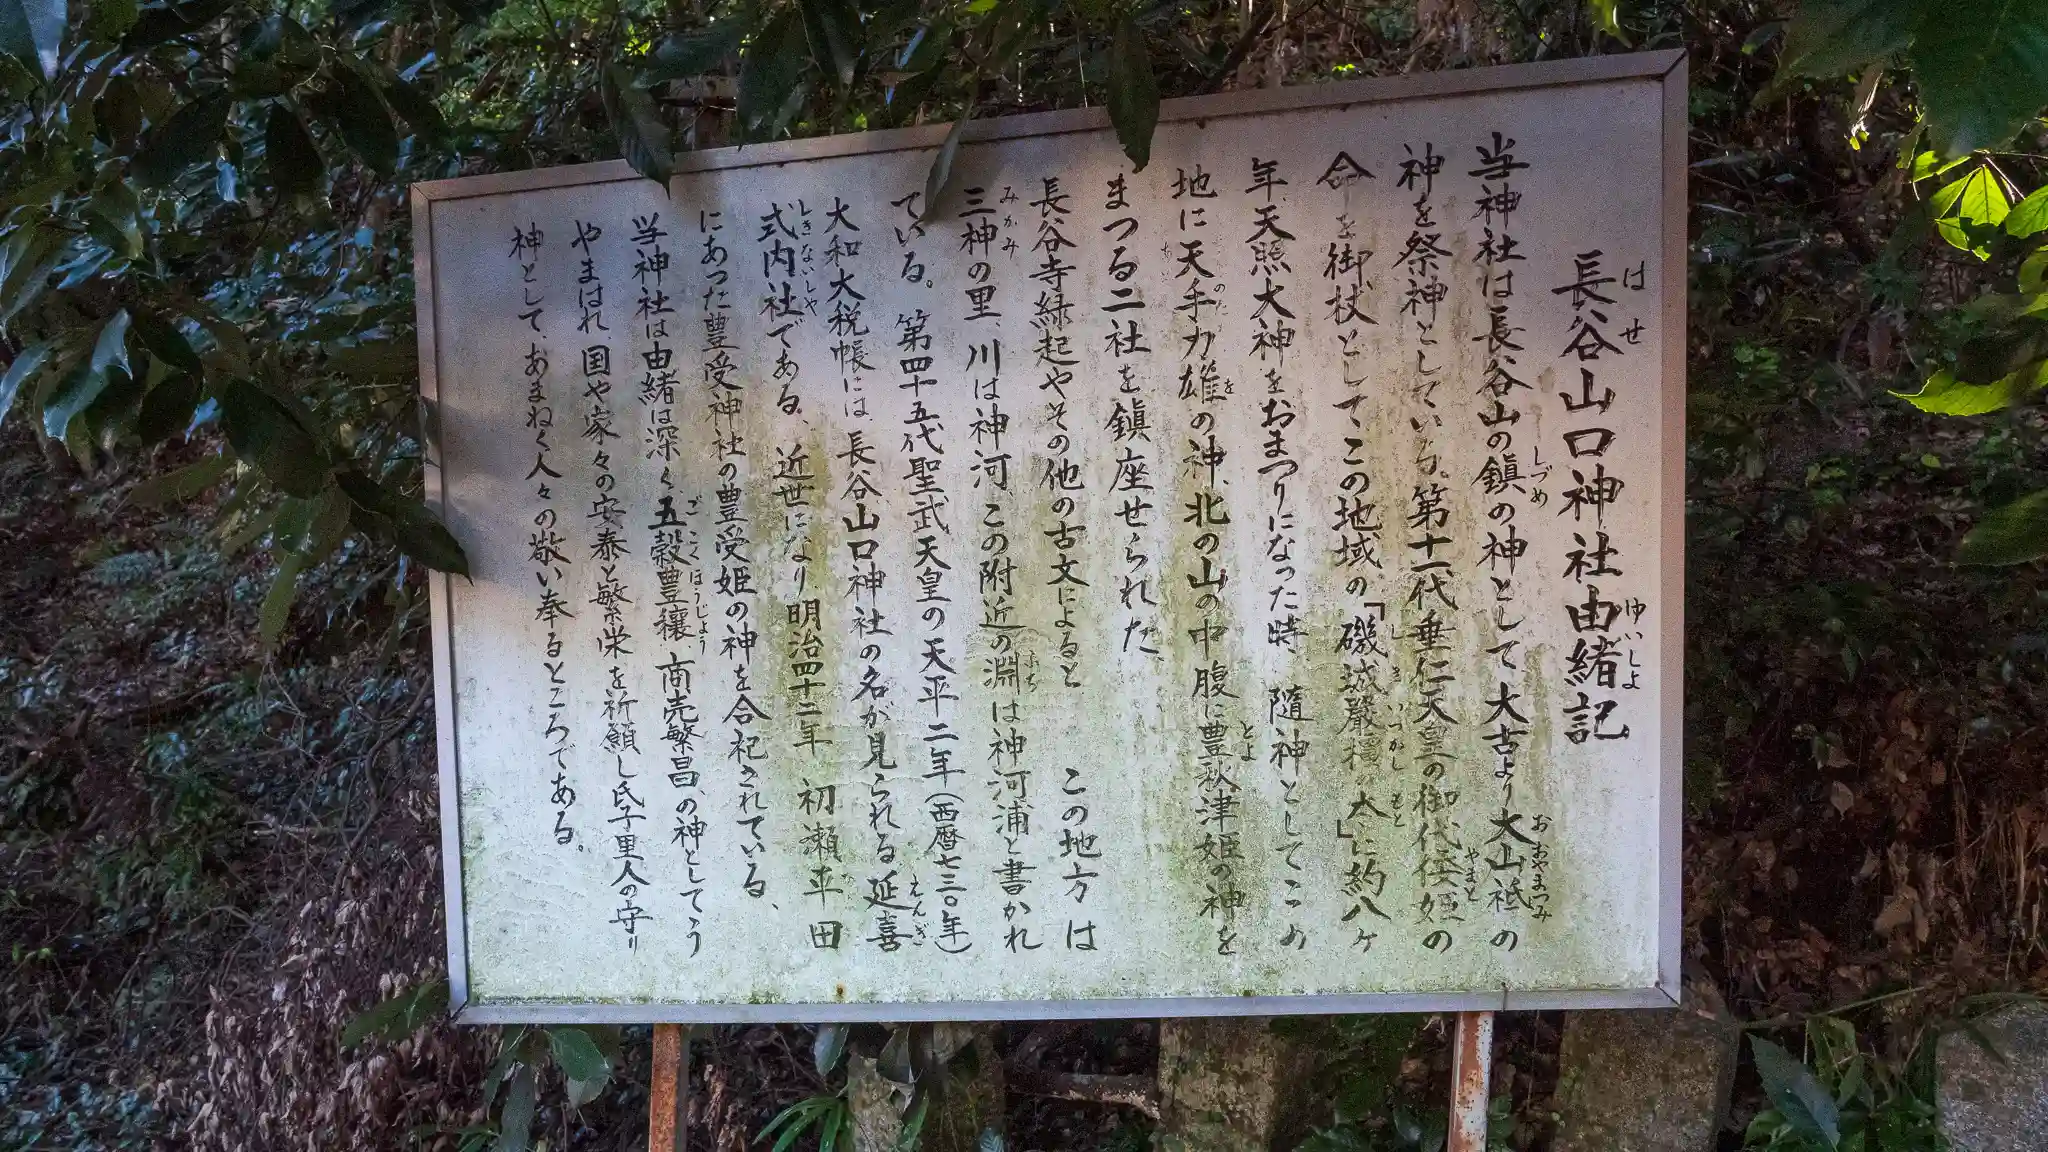 長谷山口神社由緒記
当神社は長谷山の鎮の神として大古より大山祗の
神を祭神としている。第十一代垂仁天皇の御代倭姫の
命を御杖として、この地域の「磯城嚴橿の本」に約八ヶ
年、天照大神をおまつりになった時、随神としてこの
地に天手力雄の神、北の山の中腹に豊秋津姫の神を
まつる二社を鎮座せられた、
長谷寺緑起やその他の古文によると　この地方は
三神の里、川は神河、この附近の淵は神河浦と書かれ
ている。第四十五代聖武天皇の天平二年(西暦七三〇年)
大和大税帳には、長谷山口神社の名が見られる延喜
式内社である、近世になり明治四十二年　初瀬平田
にあった豊受神社の豊受姫の神を合祀されている、
当神社は由緒は深く、五穀豊穰、商売繁昌、の神としてう
やまはれ、国や家々の安泰と繁栄を祈願し氏子里人の守り
神として、あまねく人々の敬い奉るところである。